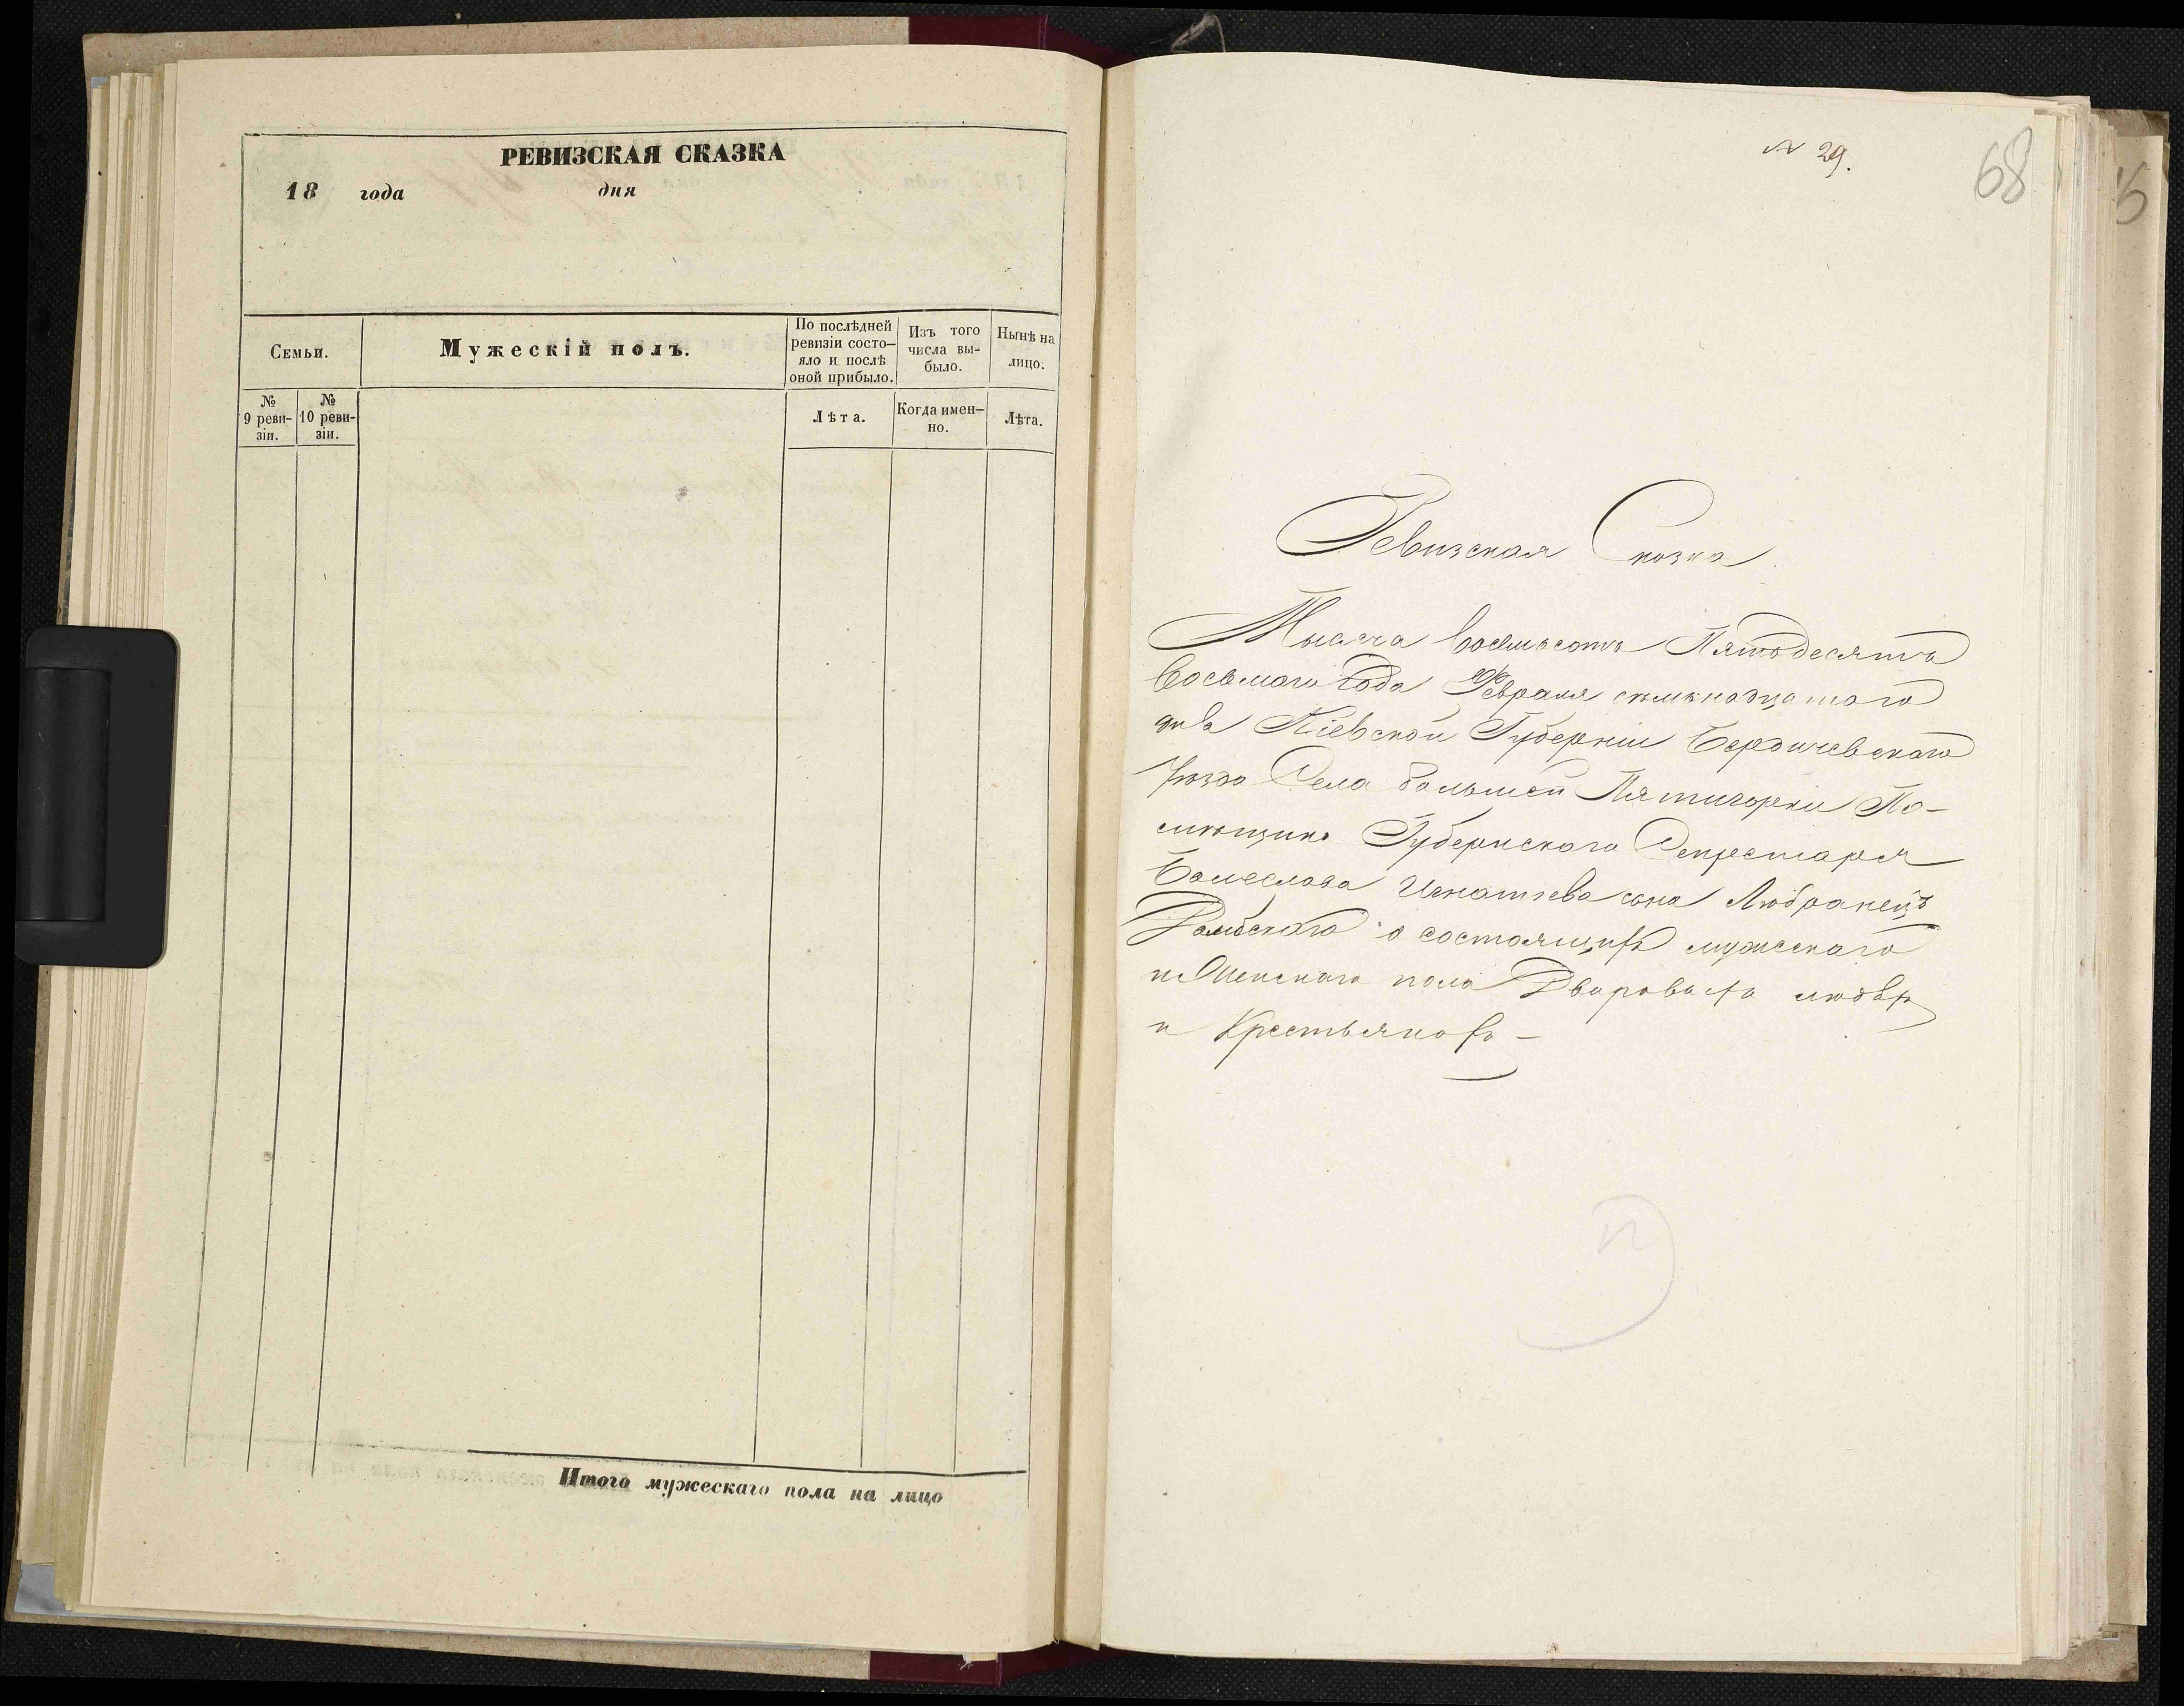 РЕВИЗСКАЯ СКАЗКА
18 года дня
Семьи.
Мужескій полъ.
По послѣдней ревизіи состо-
яло и послѣ оной прибыло.
Изъ того числа вы-
было.
Нынѣ на лицо.
№ 9 реви-
зіи.
№ 10 реви-
зіи.
Лѣта.
Когда имен-
но.
Лѣта.
Итого мужескаго пола на лицо
N 29.
68
Ревизская Сказка
Тысяча восемьсотъ Пятьдесятъ
восьмаго Года Февраля семьнадцатаго
дня Кіевской Губерніи Бердичевскаго
Уѣзда Села большой Пятигорки По-
мѣщика Губернскаго Секретаря
Болеслава Игнатьева сына Любранецъ
Дамбскаго о состоящихъ мужескаго
и Женскаго пола Дворовыхъ людяхъ
и Крестьянахъ –